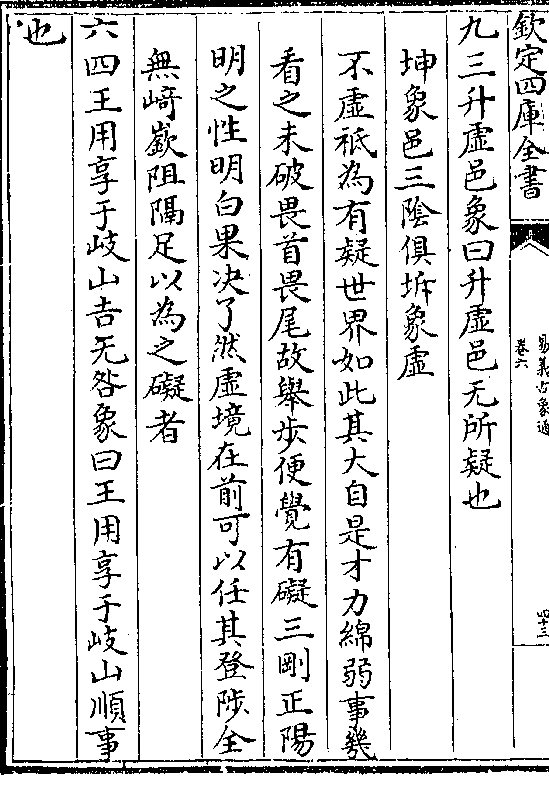 欽定四庫全書
易義古象通
卷六
四十三
九三升虛邑象曰升虛邑无所疑也
坤象邑三陰俱坼象虛
不虛祗為有疑世界如此其大自是才力綿弱事幾
看之未破畏首畏尾故舉步便覺有礙三剛正陽
明之性明白果決了然虛境在前可以任其登陟全
無﨑嶔阻隔足以為之礙者
六四王用享于岐山吉无咎象曰王用享于岐山順事
也